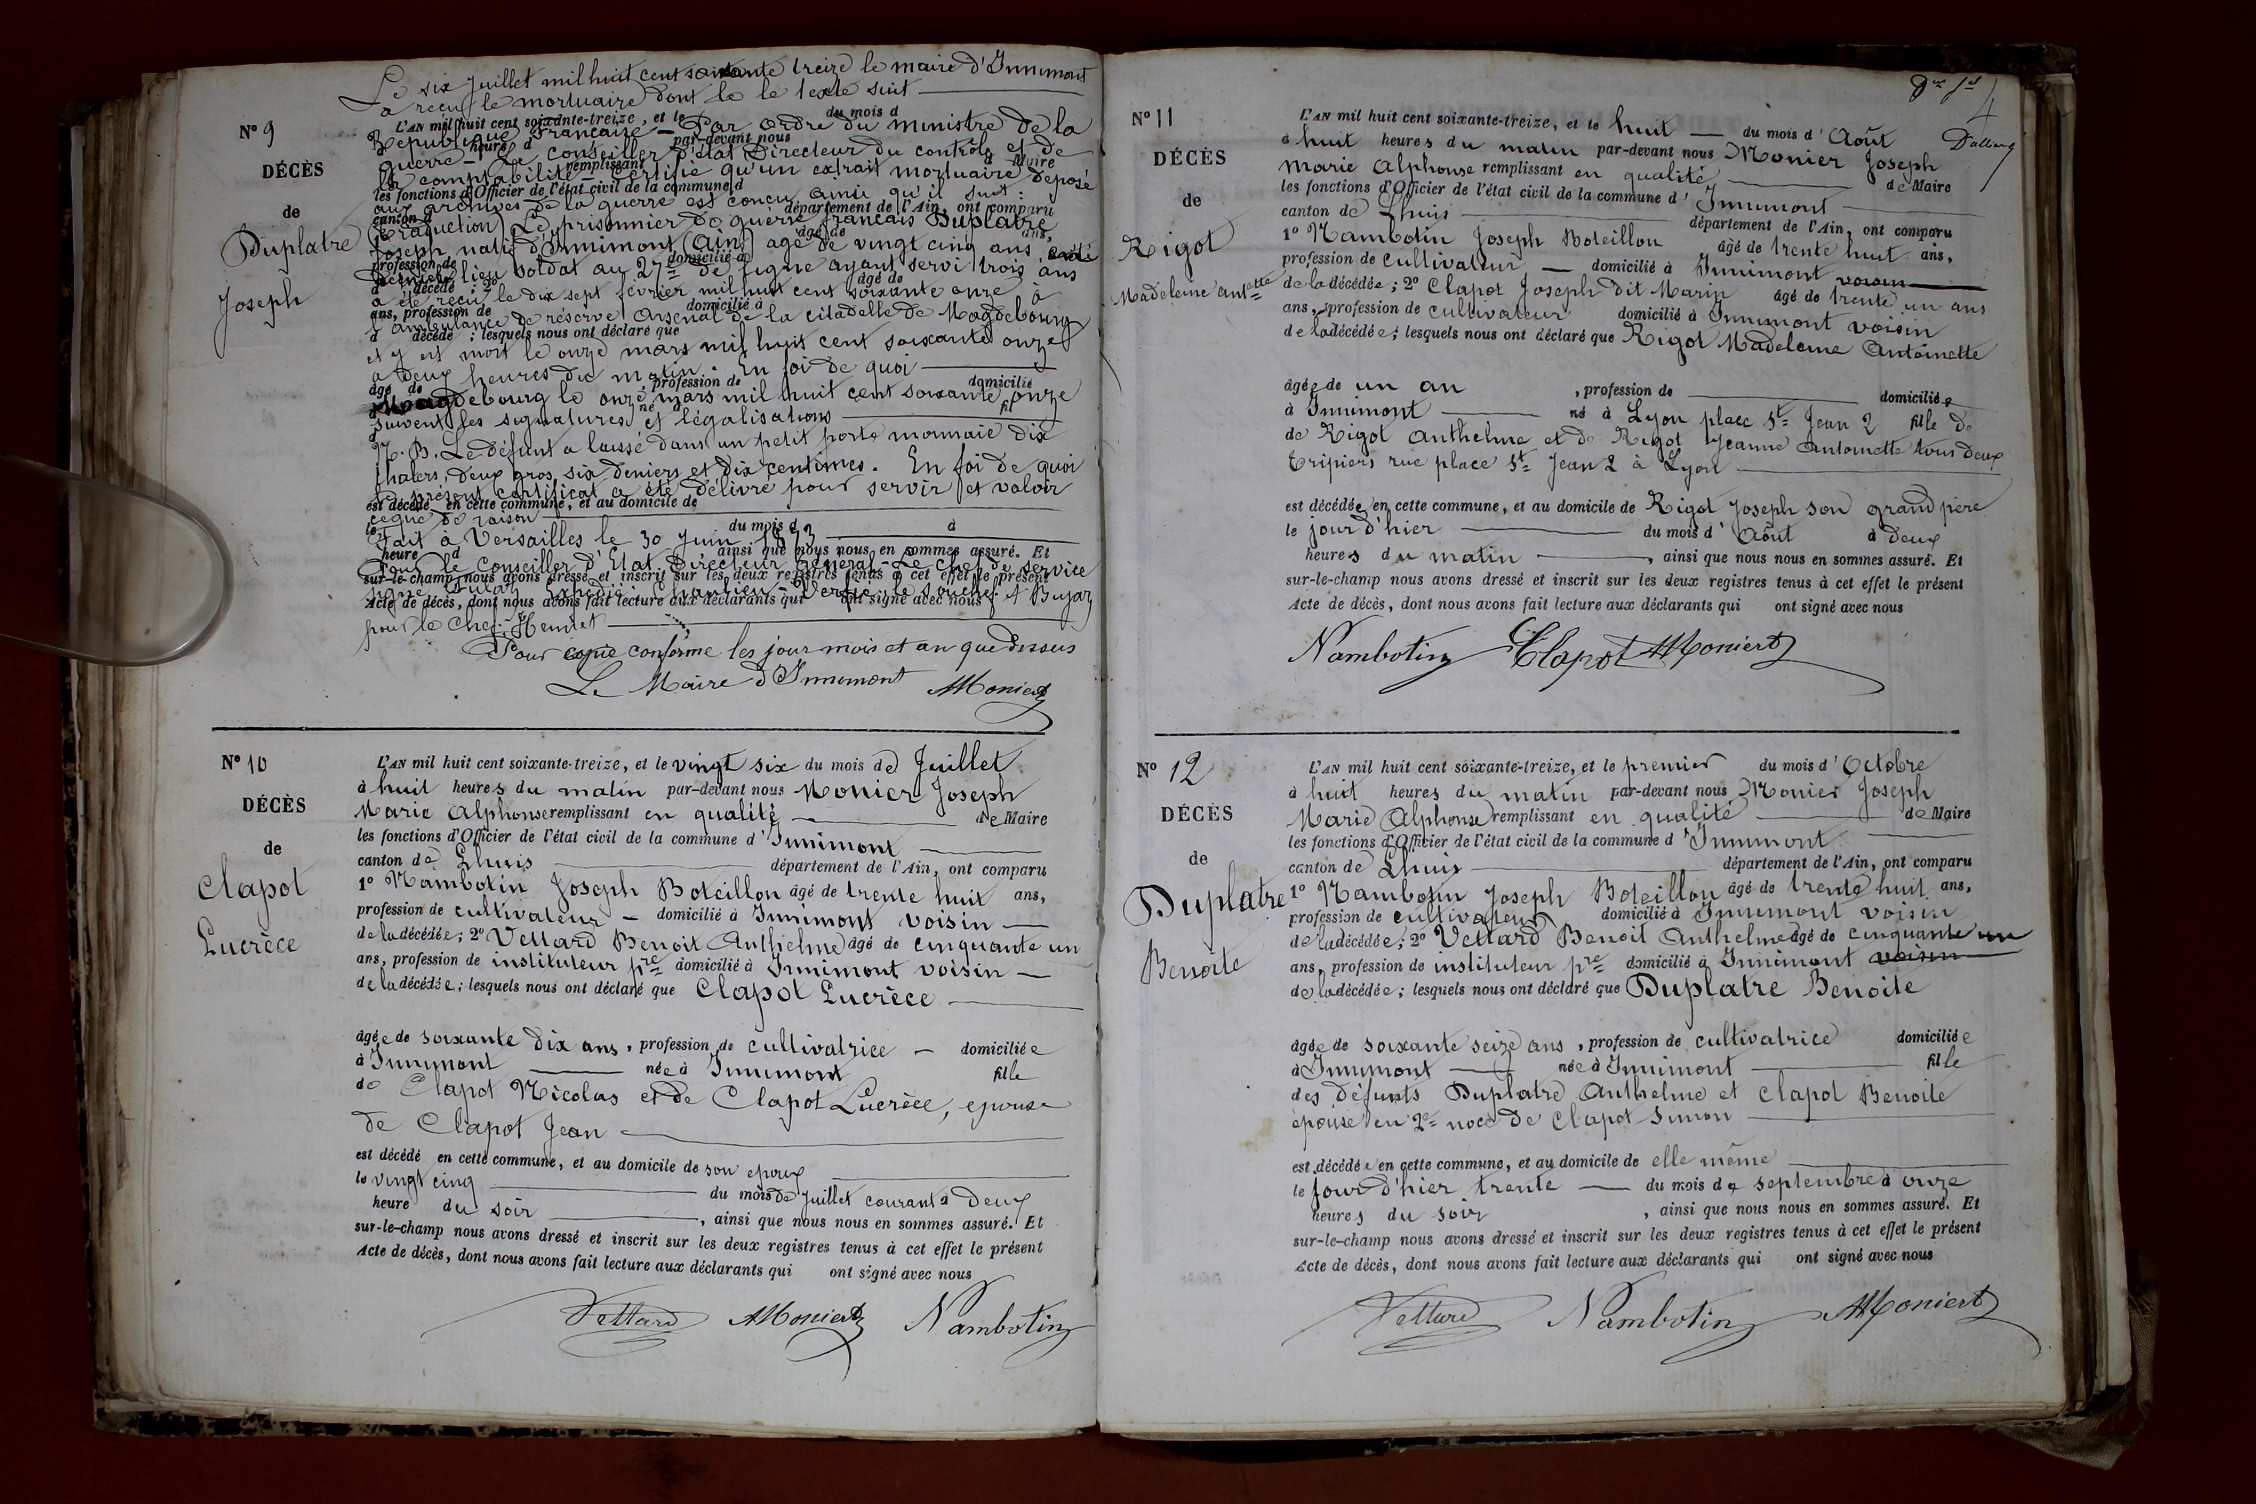 Le six Juillet mil huit cent soixante treize le maire d'Innimont
a reçu le mortuaire dont le le texte suit
N° 9
DÉCÈS
de
Duplatre
Joseph
L'AN mil huit cent soixante-treize, et le du mois d
République Française - Par ordre du ministre de la
heure d par-devant nous
guerre - Le Conseiller d'état Directeur du contrôle et de
remplissant d Maire
la comptabilité certifie qu'un extrait mortuaire déposé
les fonctions d'Officier de l'état civil de la commune d
aux archives de la guerre est conçu ainsi qu'il suit :
canton d département de l'Ain, ont comparu
(Traduction) Le prisonnier de guerre français Duplatre
âgé de ans,
Joseph natif d'Innimont (Ain) agé de vingt cinq ans
profession de domicilié à
dernier lieu soldat au 27e de ligne ayant servi trois ans
d décédé ; 2° âgé de
a été reçu le dix sept février mil huit cent soixante onze à
ans, profession de domicilié à
l'ambulance de réserve Arsenal de la citadelle de Magdebourg
d décédé ; lesquels nous ont déclaré que
et y est mort le onze mars mil huit cent soixante onze
à deux heures du matin. En foi de quoi
âgé de profession de domicilié
Magdebourg le onze mars mil huit cent soixante onze
à né à fil
suivent les signatures et légalisations
d
N.B. Le défunt a laissé dans un petit porte monnaie dix
thalers, deux gros, six deniers et dix centimes. En foi de quoi
le présent certificat a été délivré pour servir et valoir
est décédé en cette commune, et au domicile de
ce que de raison
le du mois d à
Fait à Versailles le 30 Juin 1873
heure d ainsi que nous nous en sommes assuré. Et
Pour le Conseiller d'Etat Directeur Général - Le chef de service
sur-le-champ nous avons dressé et inscrit sur les deux registres tenus à cet effet le présent
signé
Acte de décès, dont nous avons fait lecture aux déclarants qui ont signé avec nous
pour le Chef
Pour copie conforme les jour mois et an que dessus
Le Maire d'Innimont AMonier
N° 10
DÉCÈS
de
Clapot
Lucrèce
L'AN mil huit cent soixante-treize, et le vingt six du mois de Juillet
à huit heures du matin par-devant nous Monier Joseph
Marie Alphonse remplissant en qualité de Maire
les fonctions d'Officier de l'état civil de la commune d'Innimont
canton de Lhuis département de l'Ain, ont comparu
1° Nambotin Joseph Boteillon âgé de trente huit ans,
profession de cultivateur domicilié à Innimont voisin
de la décédée ; 2° Vettard Benoit Anthelme âgé de cinquante un
ans, profession de instituteur pre domicilié à Innimont voisin
de la décédée ; lesquels nous ont déclaré que Clapot Lucrèce
âgée de soixante dix ans, profession de cultivatrice domiciliée
à Innimont née à Innimont fille
de Clapot Nicolas et de Clapot Lucrèce, epouse
de Clapot Jean
est décédé en cette commune, et au domicile de son epoux
le vingt cinq du mois de Juillet courant à deux
heure du soir, ainsi que nous nous en sommes assuré. Et
sur-le-champ nous avons dressé et inscrit sur les deux registres tenus à cet effet le présent
Acte de décès, dont nous avons fait lecture aux déclarants qui ont signé avec nous
Vettard AMonier Nambotin
N° 11
DÉCÈS
de
Rigot
Madeleine Antette
L'AN mil huit cent soixante-treize, et le huit du mois d'Août
à huit heures du matin par-devant nous Monier Joseph
Marie Alphonse remplissant en qualité de Maire
les fonctions d'Officier de l'état civil de la commune d'Innimont
canton de Lhuis département de l'Ain, ont comparu
1° Nambotin Joseph Boteillon âgé de trente huit ans,
profession de cultivateur domicilié à Innimont voisin
de la décédée ; 2° Clapot Joseph dit Marin âgé de trente un ans
ans, profession de cultivateur domicilié à Innimont voisin
de la décédée ; lesquels nous ont déclaré que Rigot Madeleine Antoinette
âgée de un an, profession de domiciliée
à Innimont né à Lyon place St Jean 2 fille de
de Rigot Anthelme et de Rigot Jeanne Antoinette tous deux
tripiers rue place St Jean 2 à Lyon
est décédée en cette commune, et au domicile de Rigot Joseph son grand père
le jour d'hier du mois d'Août à deux
heures du matin, ainsi que nous nous en sommes assuré. Et
sur-le-champ nous avons dressé et inscrit sur les deux registres tenus à cet effet le présent
Acte de décès, dont nous avons fait lecture aux déclarants qui ont signé avec nous
Nambotin Clapot AMonier
N° 12
DÉCÈS
de
Duplatre
Benoite
L'AN mil huit cent soixante-treize, et le premier du mois d'Octobre
à huit heures du matin par-devant nous Monier Joseph
Marie Alphonse remplissant en qualité de Maire
les fonctions d'Officier de l'état civil de la commune d'Innimont
canton de Lhuis département de l'Ain, ont comparu
1° Nambotin Joseph Boteillon âgé de trente huit ans,
profession de cultivateur domicilié à Innimont voisin
de la décédée ; 2° Vettard Benoit Anthelme âgé de cinquante un
ans, profession de instituteur pre domicilié à Innimont voisin
de la décédée ; lesquels nous ont déclaré que Duplatre Benoite
âgée de soixante seize ans, profession de cultivatrice domiciliée
à Innimont née à Innimont fille
des défunts Duplatre Anthelme et Clapot Benoite
épouse en 2e noce de Clapot Simon
est décédée en cette commune, et au domicile de elle même
le jour d'hier trente du mois de septembre à onze
heures du soir, ainsi que nous nous en sommes assuré. Et
sur-le-champ nous avons dressé et inscrit sur les deux registres tenus à cet effet le présent
Acte de décès, dont nous avons fait lecture aux déclarants qui ont signé avec nous
Vettard Nambotin AMonier